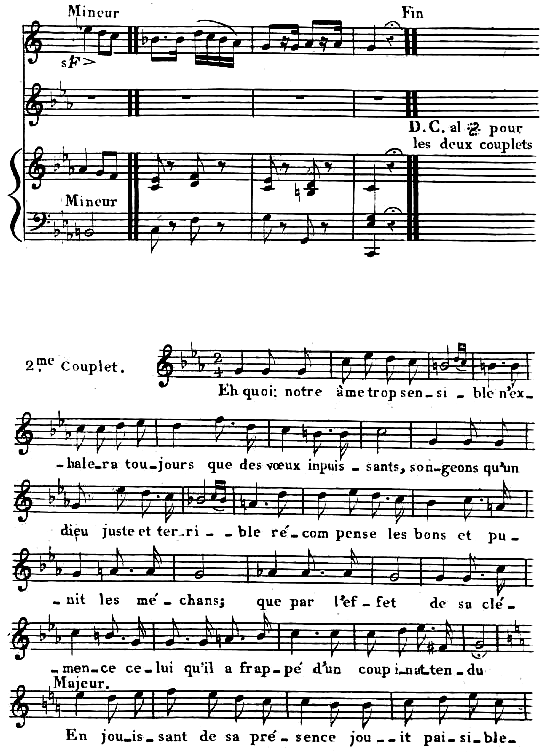 Mineur Fin
sF>
D.C. al 𝄋 pour
les deux couplets
Mineur
2.me Couplet.
Eh quoi: notre âme trop sen-si-ble n'ex-
-hale-ra tou-jours que des vœux inpuis-sants, son-geons qu'un
dieu juste et ter-ri--ble ré-com pense les bons et pu-
-nit les mé-chans; que par l'ef-fet de sa clé-
-men-ce ce-lui qu'il a frap-pé d'un coup i-nat-ten-du
Majeur.
En jou-is-sant de sa pré-sence jou--it pai-si-ble-